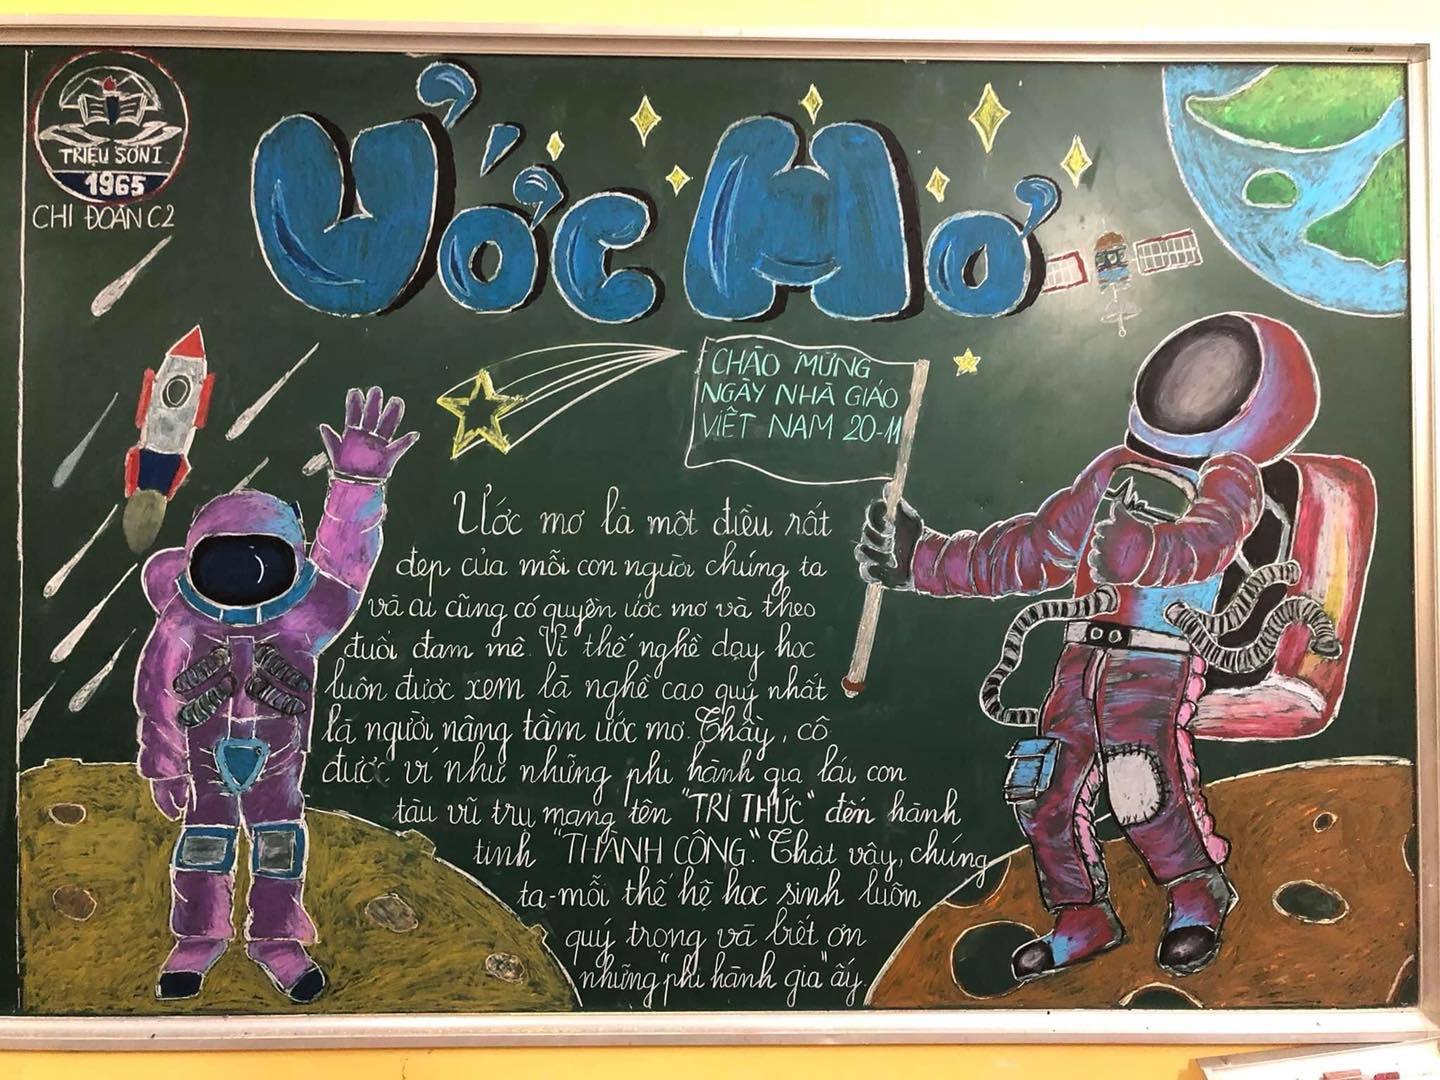 TRIỆU SƠN I
1965
CHI ĐOÀN C2
Ước Mơ
CHÀO MỪNG
NGÀY NHÀ GIÁO
VIỆT NAM 20-11
Ước mơ là một điều rất
đẹp của mỗi con người chúng ta
và ai cũng có quyền ước mơ và theo
đuổi đam mê. Vì thế nghề dạy học
luôn được xem là nghề cao quý nhất
là người nâng tầm ước mơ. Thầy, cô
được ví như những phi hành gia lái con
tàu vũ trụ mang tên "TRI THỨC" đến hành
tinh "THÀNH CÔNG". Thật vậy, chúng
ta-mỗi thế hệ học sinh luôn
quý trọng và biết ơn
những "phi hành gia" ấy.